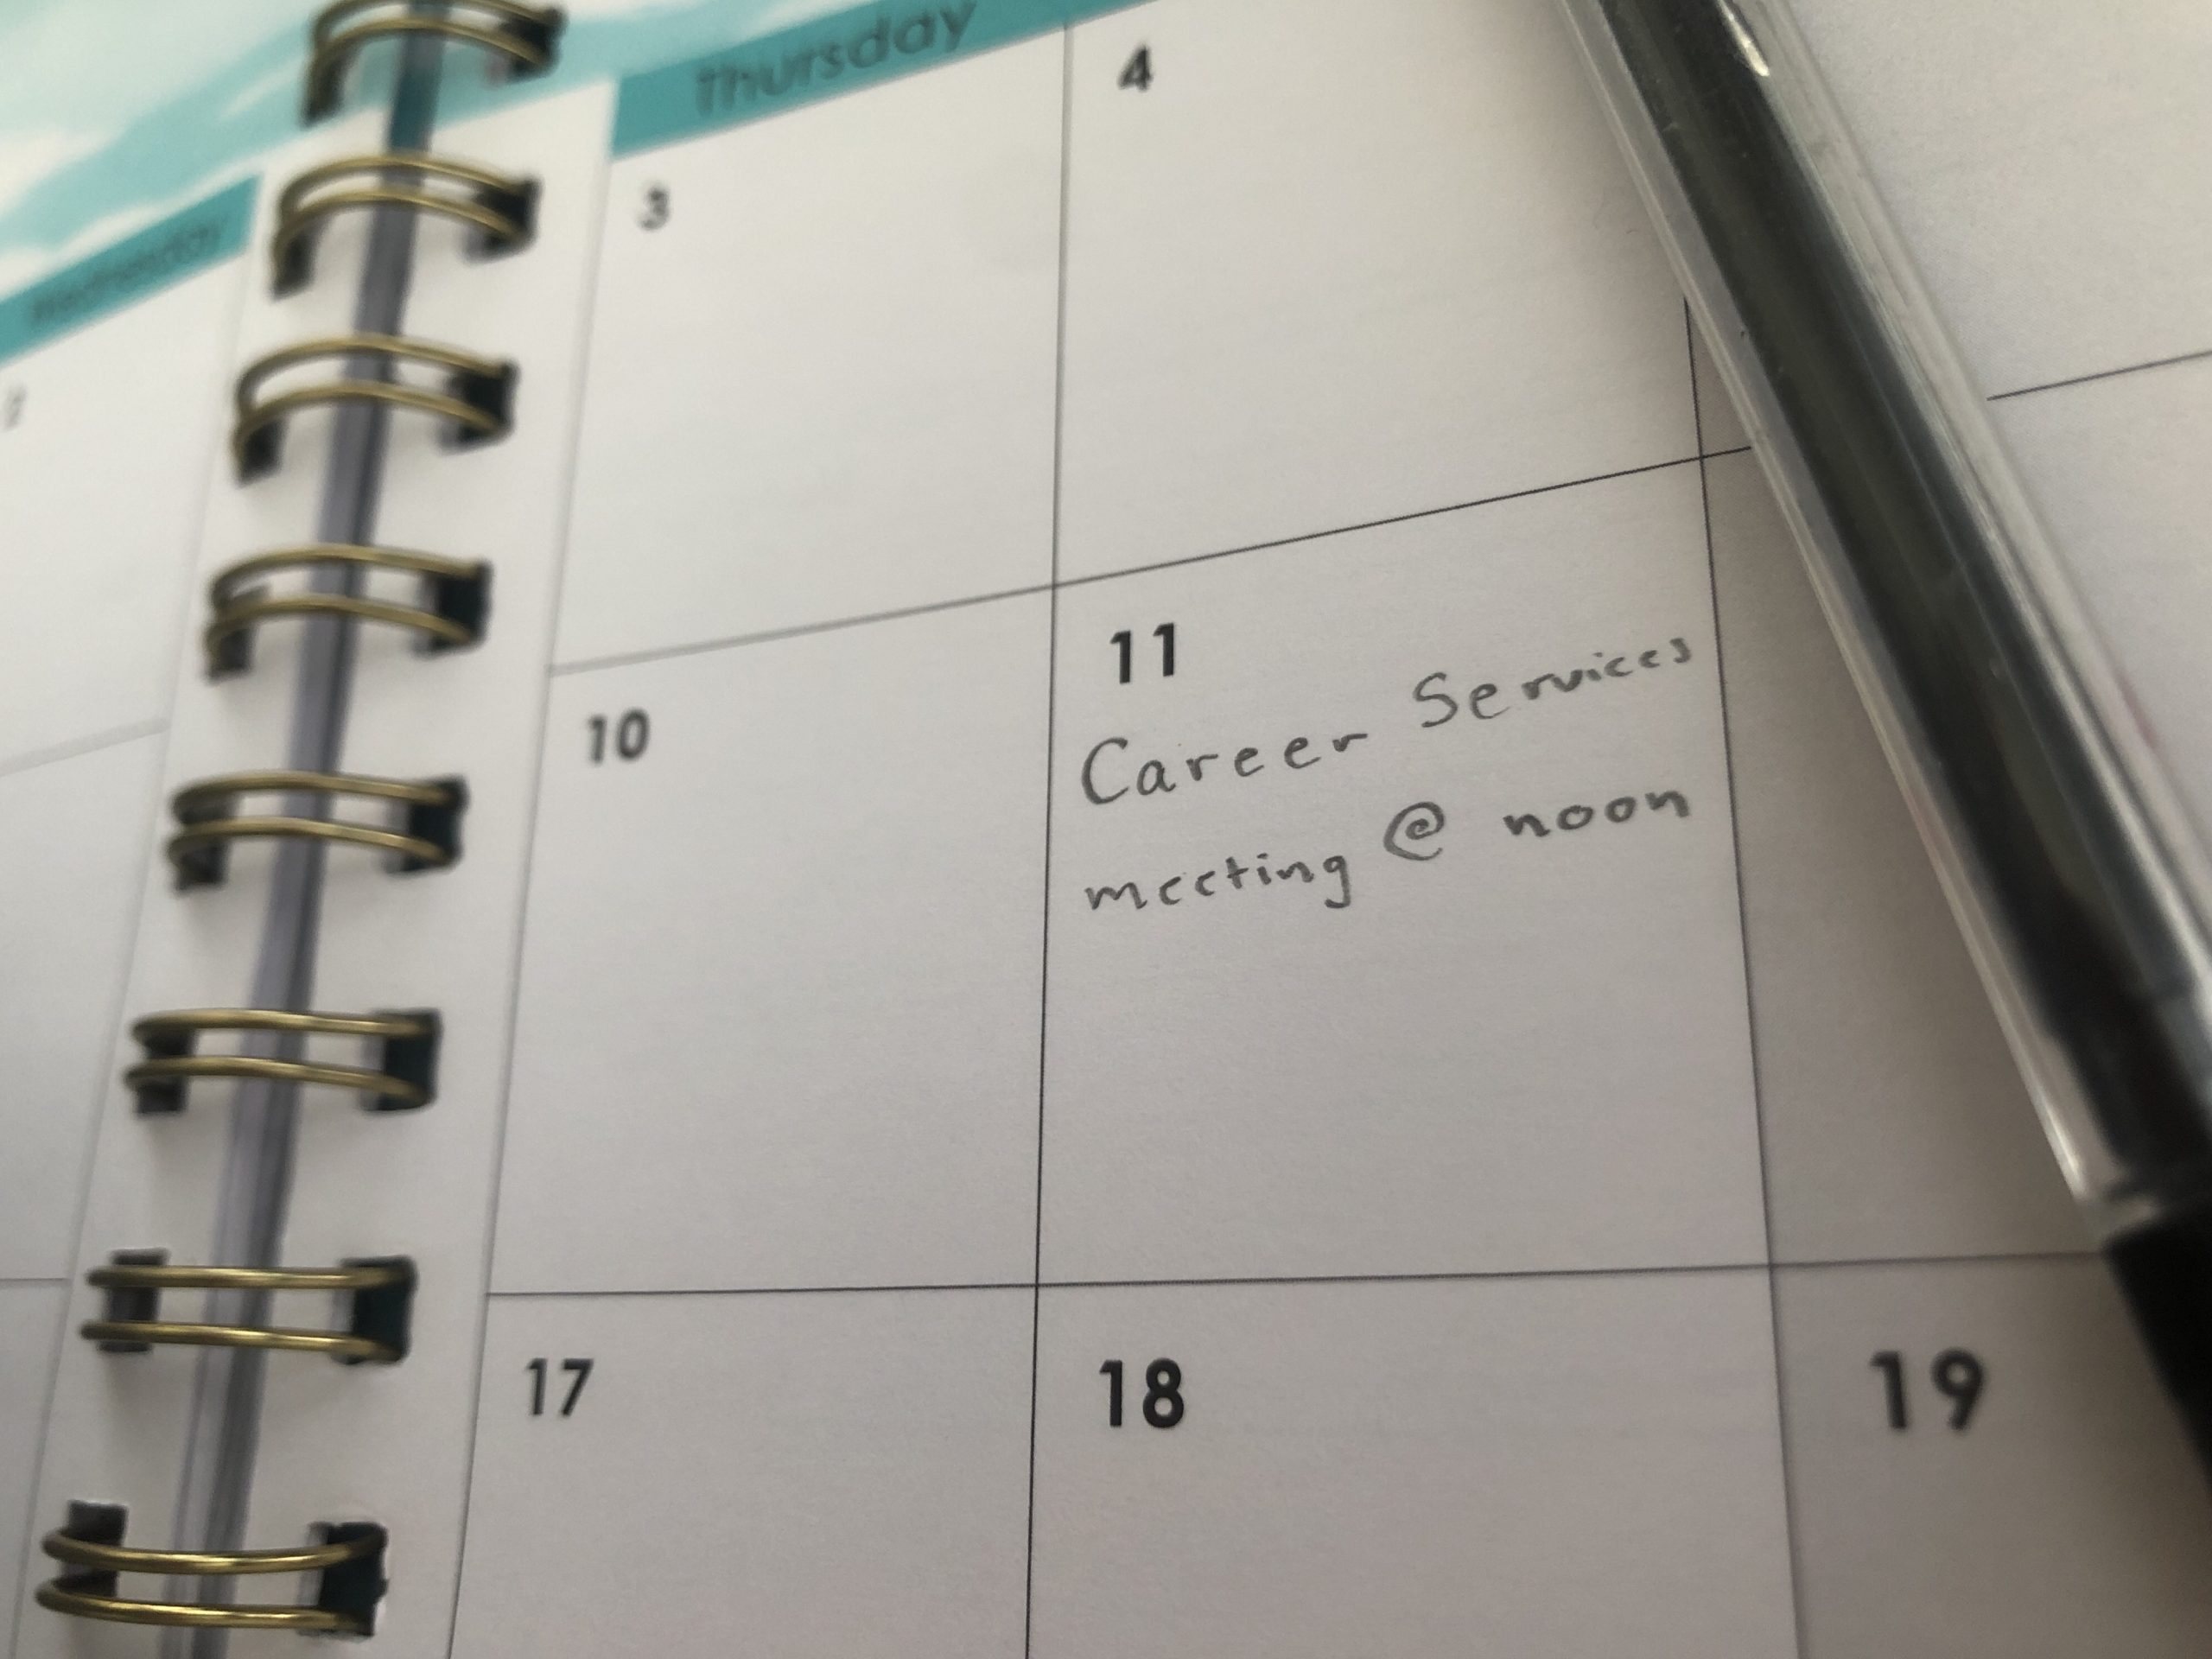 Wednesday
Thursday
2
3
4
10
11
Career Services
meeting @ noon
17
18
19